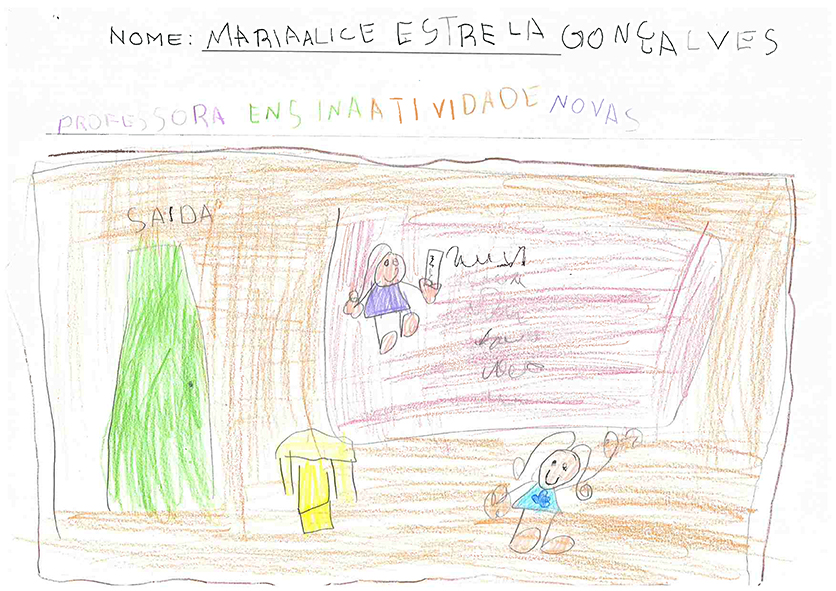 NOME: MARIAALICE ESTRELA GONÇALVES
PROFESSORA ENSINAATIVIDADE NOVAS
SAIDA